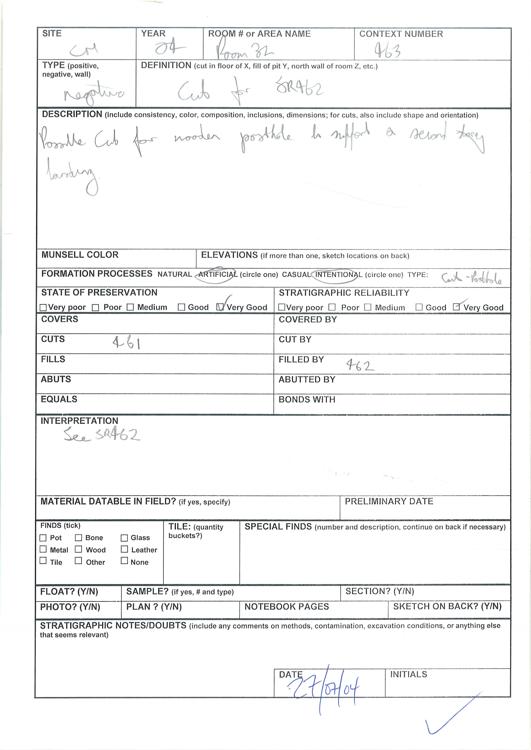 SITE YEAR ROOM # or AREA NAME CONTEXT NUMBER
CM 04 Room 32 463
TYPE (positive, negative, wall) DEFINITION (cut in floor of X, fill of pit Y, north wall of room Z, etc.)
Negative Cut for SR462
DESCRIPTION (Include consistency, color, composition, inclusions, dimensions; for cuts, also include shape and orientation)
Possible Cut for wooden posthole to support a second storey
landing.
MUNSELL COLOR ELEVATIONS (if more than one, sketch locations on back)
FORMATION PROCESSES NATURAL ARTIFICIAL (circle one) CASUAL INTENTIONAL (circle one) TYPE: Cut - Posthole
STATE OF PRESERVATION STRATIGRAPHIC RELIABILITY
☐Very poor ☐ Poor ☐ Medium ☐ Good ☑Very Good ☐Very poor ☐ Poor ☐ Medium ☐ Good ☑ Very Good
COVERS COVERED BY
CUTS 461 CUT BY
FILLS FILLED BY 462
ABUTS ABUTTED BY
EQUALS BONDS WITH
INTERPRETATION
See SR462
MATERIAL DATABLE IN FIELD? (if yes, specify) PRELIMINARY DATE
FINDS (tick) TILE: (quantity buckets?) SPECIAL FINDS (number and description, continue on back if necessary)
☐ Pot ☐ Bone ☐ Glass
☐ Metal ☐ Wood ☐ Leather
☐ Tile ☐ Other ☐ None
FLOAT? (Y/N) SAMPLE? (if yes, # and type) SECTION? (Y/N)
PHOTO? (Y/N) PLAN ? (Y/N) NOTEBOOK PAGES SKETCH ON BACK? (Y/N)
STRATIGRAPHIC NOTES/DOUBTS (include any comments on methods, contamination, excavation conditions, or anything else
that seems relevant)
DATE INITIALS
27/07/04